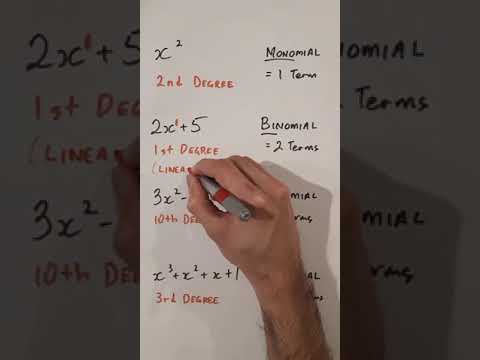 x² Monomial
2nd Degree = 1 Term
2x¹ + 5 Binomial
1st Degree = 2 Terms
(Linea
3x² -
10th De
x³ + x² + x + 1
3rd Degree